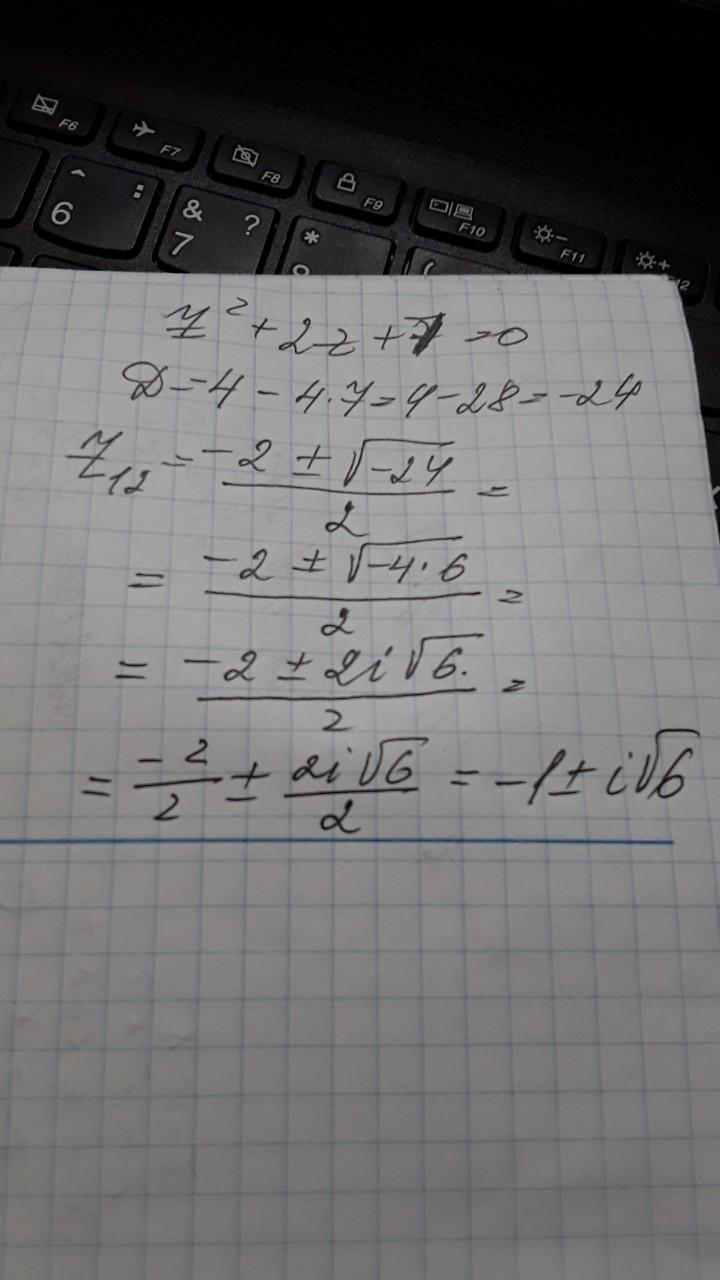 F6 F7 F8 F9 F10 F11 F12
^ 6 : & 7 ? * (
z² + 2z + 7 = 0
D = 4 − 4·7 = 4 − 28 = −24
z₁₂ = (−2 ± √−24)/2 =
= (−2 ± √−4·6)/2 =
= (−2 ± 2i√6.)/2 =
= −2/2 ± 2i√6/2 = −1 ± i√6